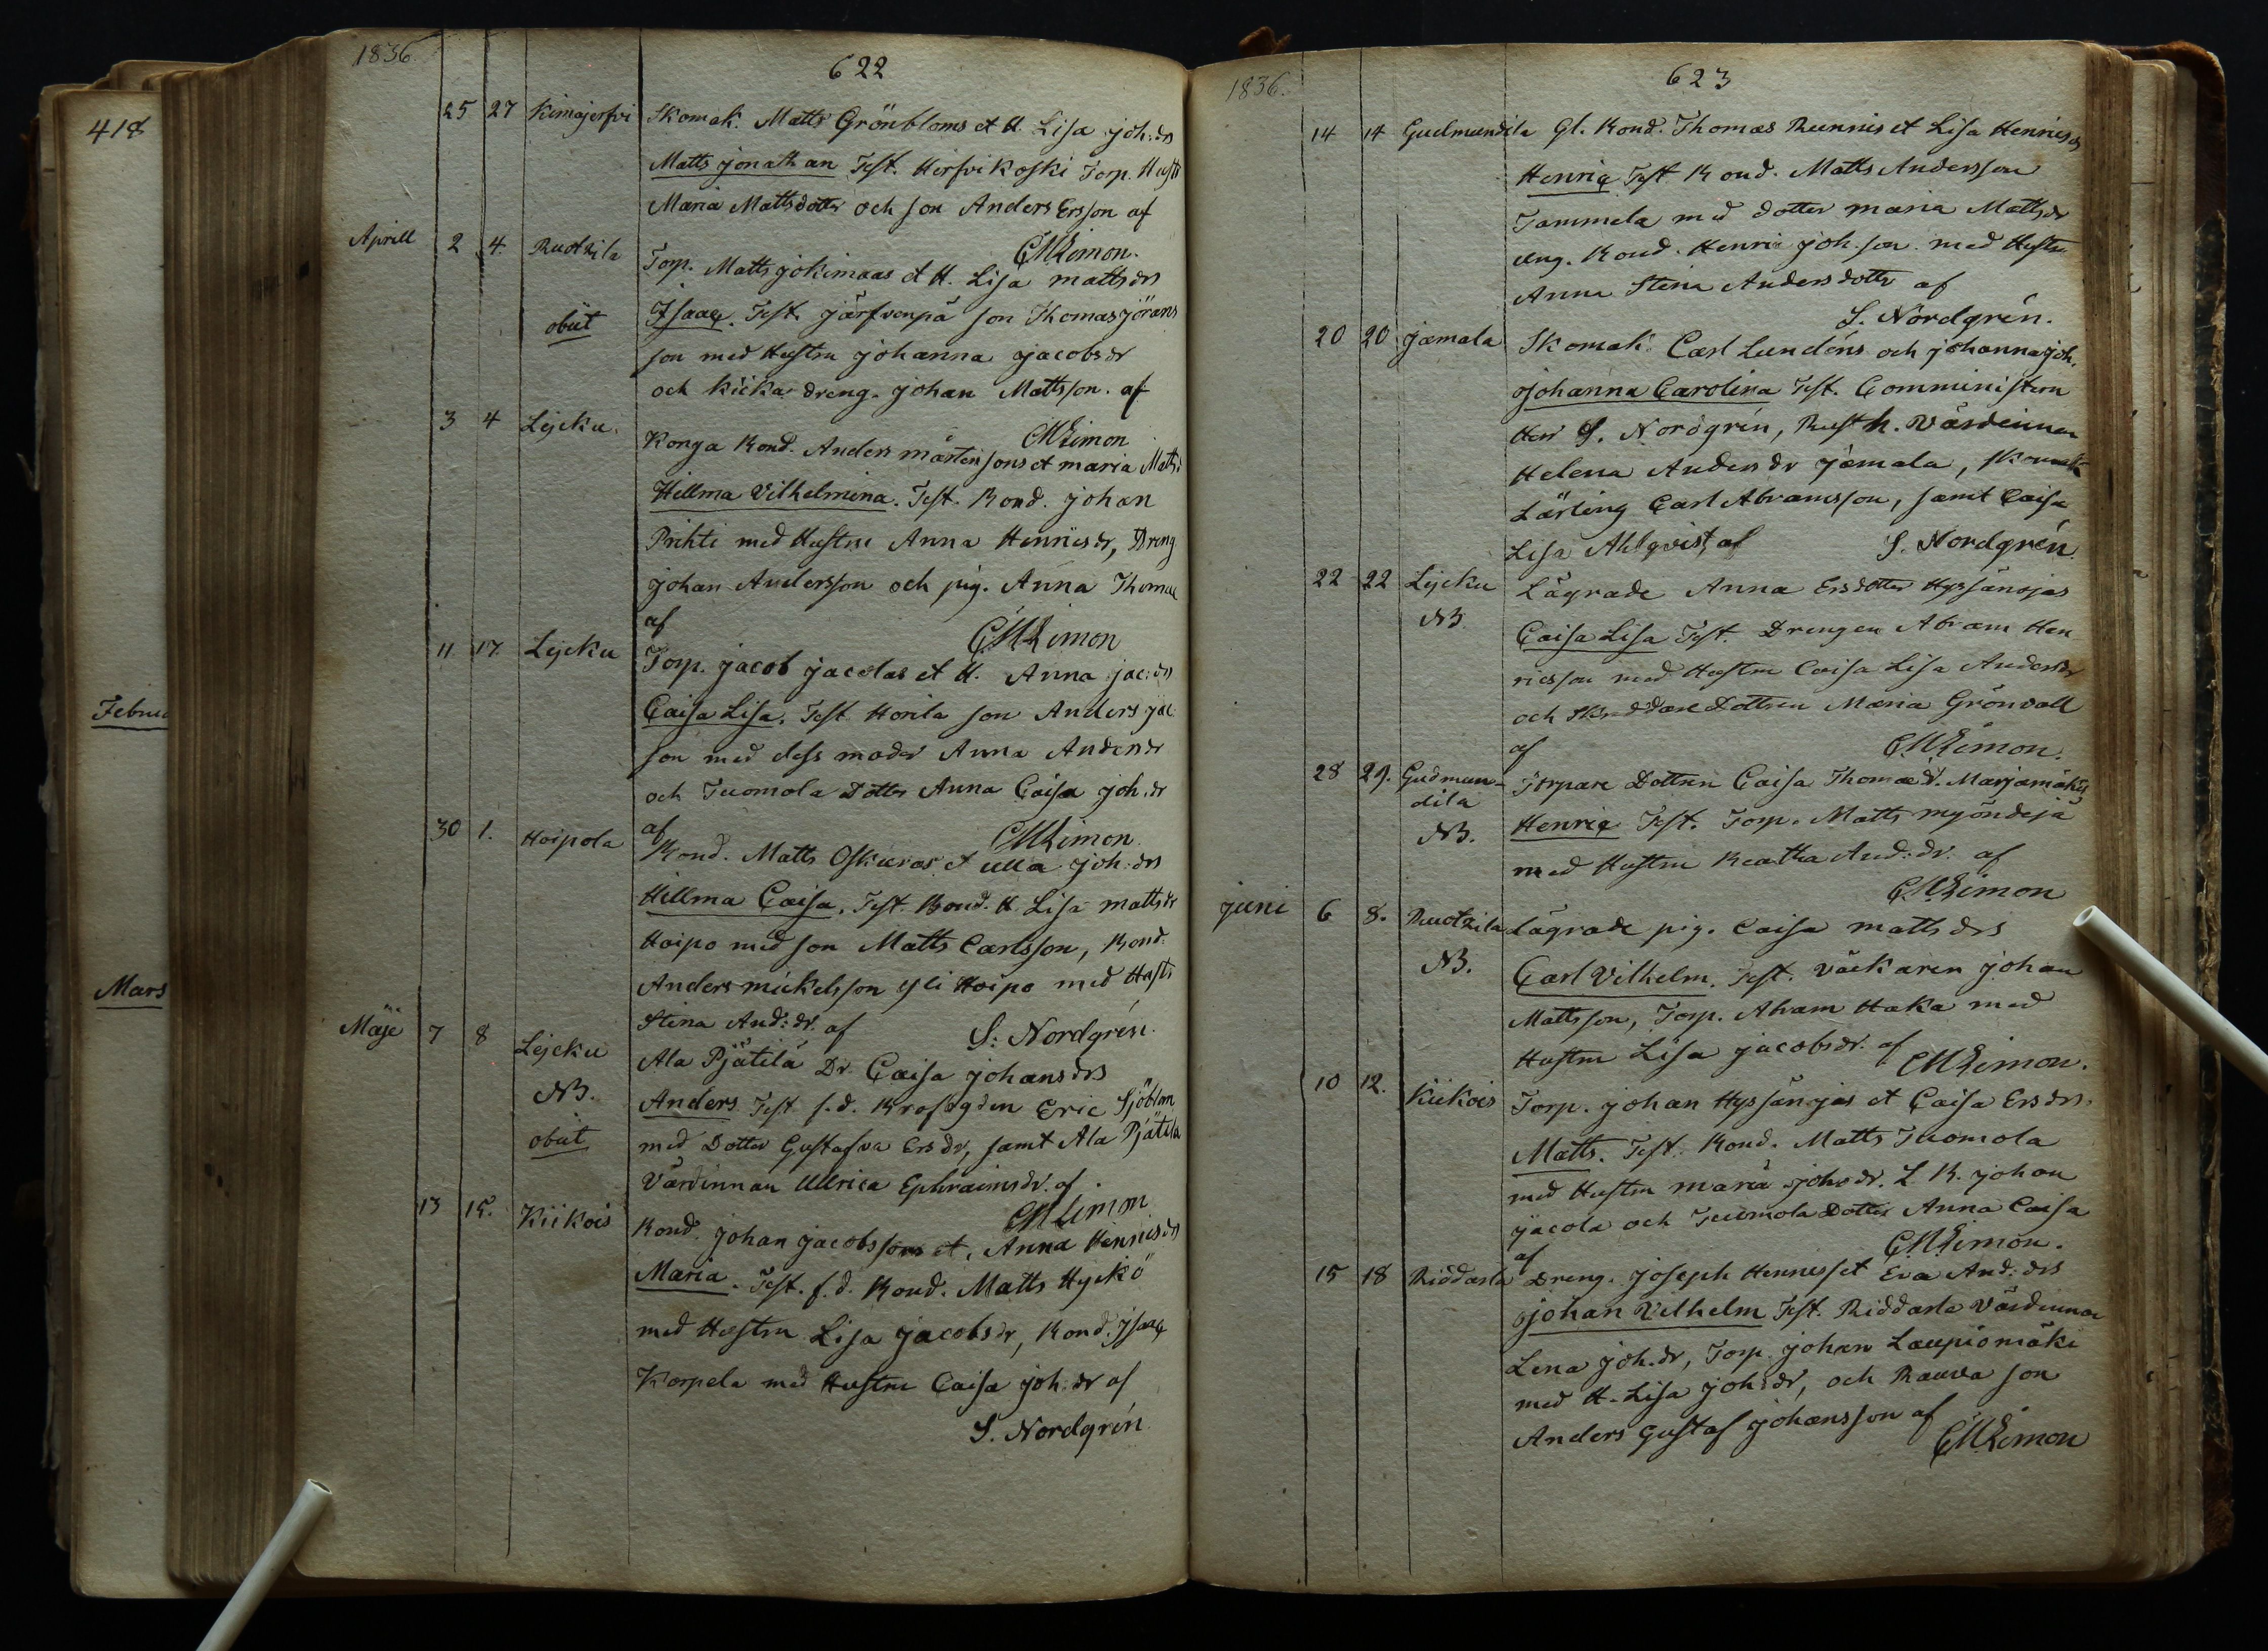 418
Februa
Mars
1836.
622
25 27 Kimajerfvi Skomak. Matts Grönbloms et H. Lisa joh:drs
Matts jonathan Test. Hirfvikoski Torp. Hust
Maria Mattsdotter och son Anders Ersson af
CMLimon.
Aprill 2 4. Ruotzila Torp. Matts jokimaas et H. Lisa mattsdrs
obiit Isaac. Test. järfvenpä son Thomas jörans
son med Hustru johanna jacobsdr
och Kiika dreng. johan Mattsson. af
CMLimon
3 4 Lejcku. Konga Bond. Anders mårtenssons et maria Matts
Hillma Vilhelmina. Test. Bond. johan
Prihti med Hustru Anna Henricsdr, Dreng
johan Andersson och pig. Anna Thomae
af CMLimon
11. 17. Lejcku Torp. jacob jacolas et H. Anna jac:drs
Caisa Lisa. Test. Horila son Anders jac
son med dess moder Anna Andersdr
och Tuomola Dotter Anna Caisa joh:dr
af CMLimon.
30 1. Hoipola Bond. Matts Oskaras et ulla joh:drs
Hillma Caisa. Test. Bond. H. Lisa mattsdr
Hoipo med son Matts Carlsson, Bond.
Anders mickelsson yli Hoipo med Hustr
Stina And:dr. af S. Nordgrén.
Maji 7 8 Lejcku Ala Pjätilä Dr. Caisa johansdrs
NB. Anders Test. f.d. Eric Sjöblom
obiit med Dotter Gustafva Ersdr, samt Ala Pjätilä
Värdinnan Ulrica Ephraimsdr. af
CMLimon
13 15. Kiikois Bond. johan jacobssons et. Anna Henricsdrs
Maria. Test. f.d. Bond. Matts Hyckö
med Hustru Lisa jacobsdr, Bond. Isaac
Korpela med Hustru Caisa joh:dr af
S. Nordgrén
1836.
623
14 14 Gudmundila Gl. Bond. Thomas Runnis et Lisa Henricsdrs
Henric Test. Bond. Matts Andersson
Tammela med dotter maria Mattsdr
ung. Bond. Henric joh.son med Hustru
Anna Stina Andersdotter af
S. Nordgrén.
20 20 jamala Skomak. Carl Lundéns och johanna joh.
johanna Carolina Test. Comministern
Herr S. Nordgrén, Rusth. Värdinnan
Helena Andersdr jamala, skomak
Lärling Carl Abramsson, samt Caisa
Lisa Ahlqvist af S. Nordgrén
22 22 Lejcku Lägrade Anna Ersdotter Hyssänojas
NB Caisa Lisa Test. Drengen Abram Hen
ricsson med Hustru Caisa Lisa Andersdr
och Skreddare Dottren Maria Grönvall
af CMLimon.
28 29. Gudmun- Torpare Dottren Caisa Thomaedr. Marjamäkis
dila Henric Test. Torp. Matts myöndejä
NB. med Hustru Beatha And:dr. af
CMLimon
juni 6 8. Ruotzila Lägrade pig. Caisa mattsdrs
NB. Carl Vilhelm. Test. Väckaren johan
Mattsson, Torp. Abram Haka med
Hustru Lisa jacobsdr. af CMLimon.
10 12. Kiikois Torp. johan Hyssänojas et Caisa Ersdrs.
Matts. Test. Bond. Matts Tuomola
med Hustru maria johsdr. L. B. johan
jacola och Tuomola Dotter Anna Caisa
af CMLimon.
15 18 Riddarla Dreng. joseph Henriss et Eva And:drs
johan Vilhelm Test. Riddarla Värdinnan
Lena joh:dr, Torp. johan Laupiomäki
med H. Lisa joh:dr, och Rauva son
Anders Gustaf johansson af
CMLimon